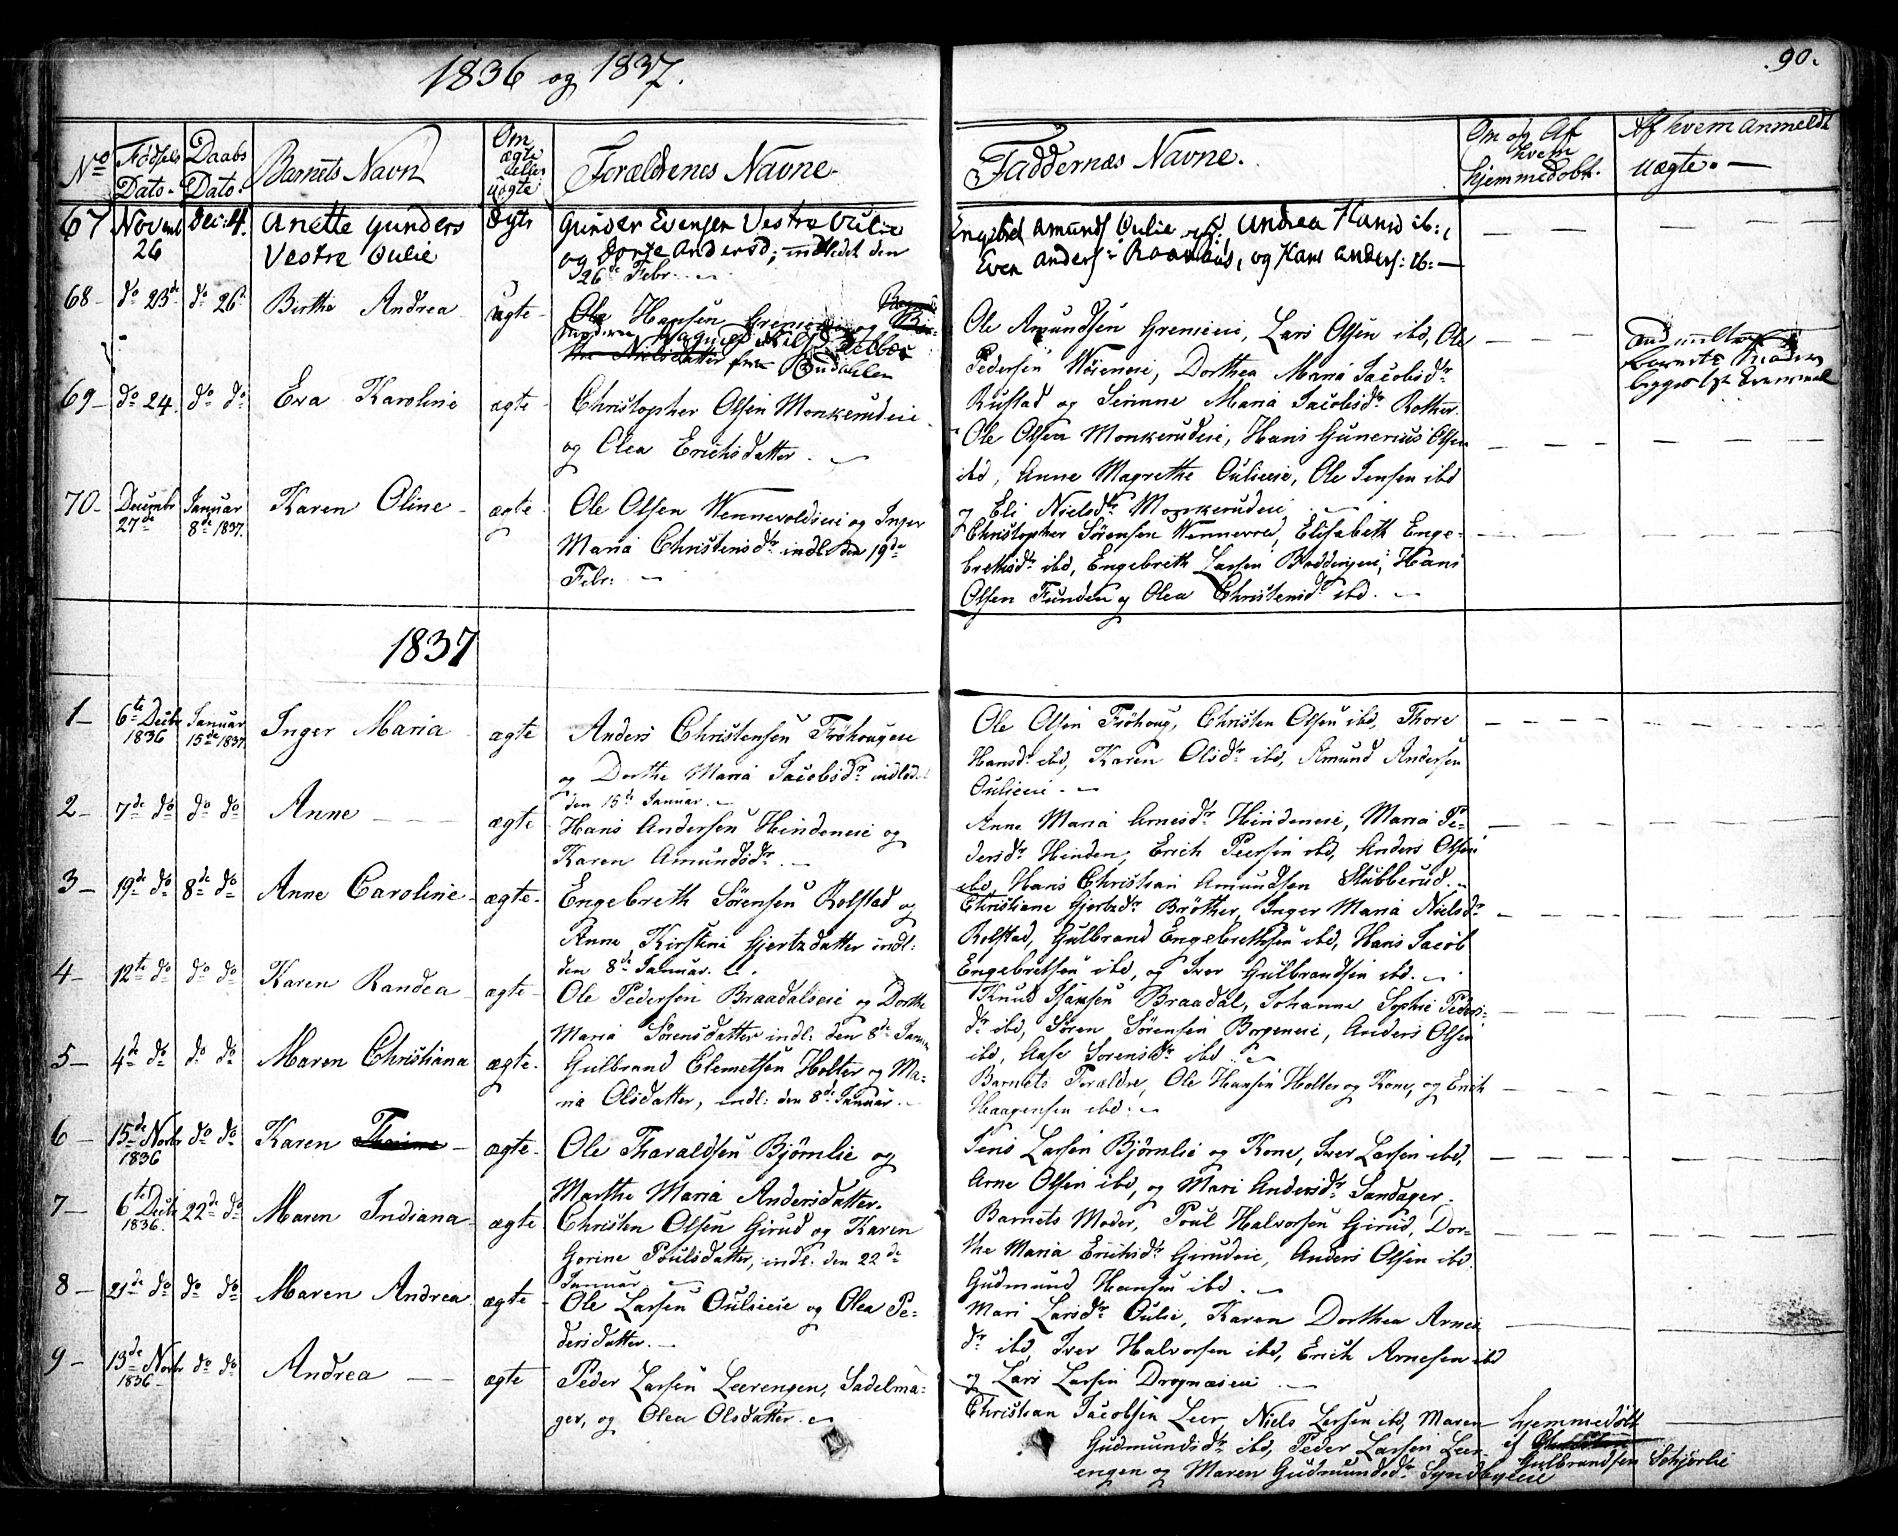 1836 og 1837.
90.
No
Fødsels Dato.
Daabs Dato.
Barnets Navn
Om ægte eller uægte
Forældrenes Navne.
Faddernes Navne.
Om og Af hvem hjemmedøbt.
Af hvem anmeldt uægte.
67 Novemb 26 Dec: 4. Anette Gunders Vestre Oulie ægte
Gunder Evensen Vestre Oulie
og Dorte Andersd; indledet den
26de Febr.
Engebret Amunds Oulie Andrea Hansd ib:,
Even Anders: og Hans Anders: ib:
68 do 23de do 26de Birthe Andrea uægte
Ole Hansen
Ole Amundsen Gremeiei, Lars Olsen ibd, Ole
Pedersen Dorthea Maria Jacobsdr
Rustad og Maria Jacobsdr
barnets Moder
69 do 24 do do Eva Karoline ægte
Christopher Olsen Monkerudeie
og Olea Erichsdatter.
Ole Olsen Monkerudeie, Hans Gunerius Olsen
ibd, Anne Magrethe Oulieeie, Ole Jensen ibd
og Eli Nielsdr Monkerudeie
70 Decembr 27de Januar 8de 1837. Karen Oline ægte
Ole Olsen Wennevoldseie og Inger
Maria Christensdr indl: den 19de
Febr:
Christopher Sørensen Wennevold, Elisabeth Enge-
brethsdr ibd, Engebreth Larsen Hans
Olsen Funden og Olea Christensdr ibd.
1837
1 6te Decbr 1836 Januar 15de 1837. Inger Maria ægte
Anders Christensen Frøhougeie
og Dorthe Maria Jacobsdr indled.
den 15de Januar.
Ole Olsen Frøhoug, Christen Olsen ibd, Thore
Hansdr ibd, Karen Olsdr ibd, Amund Andersen
Oulieeie
2 7de do do do Anne ægte
Hans Andersen Hindeneie og
Karen Amundsdr.
Anne Maria Arnesdr Hindeneie, Maria Pe-
dersdr Hinden, Erich Peersen ibd, Anders Olsen
ibd, Hans Christian Amundsen Stubberud.
3 19de do 8de do Anne Caroline ægte
Engebreth Sørensen Rolstad og
Anne Kirstine Gjertzdatter indl:
den 8de Januar.
Christiane Gjertzdr Brøther, Inger Maria Nielsdr
Rolstad, Gulbrand Engebrethsen ibd, Hans Jacob
Engebretsen ibd, og Iver Gulbrandsen ibd.
4 12te do do do Karen Randea ægte
Ole Pedersen Braadalseie og Dorthe
Maria Sørensdatter indl: den 8de Januar
Knud Braadal, Johanne Sophie Peders-
dr ibd, Søren Sørensen Borgeneie, Anders Olsen
ibd, Aase Sorensdr ibd.
5 4de do do do Maren Christiana ægte
Gulbrand Clemetsen Holter og Ma-
ria Olsdatter, indl: den 8de Januar.
Barnets Forældre, Ole Hansen Holter og Kone, og Erich
Haagensen ibd:
6 15de Novbr 1836 do do Karen ægte
Ole Tharaldsen Bjørnlie og
Marthe Maria Andersdatter.
Jens Larsen Bjørnlie og Kone, Iver Larsen ibd,
Arne Olsen ibd, og Mari Andersdr Sandager.
7 6te Decbr 1836. 22de do Maren Indiana ægte
Christen Olsen Girud og Karen
Gorine Poulsdatter, indl: den 22de
Januar
Barnets Moder, Poul Halvorsen Girud, Dor-
the Maria Erichsdr Girudeie, Anders Olsen ibd.
Gudmund Hansen ibd.
8 21de do do do Maren Andrea ægte
Ole Larsen Oulieeie og Olea Pe-
dersdatter.
Mari Larsdr Oulie, Karen Dorthea Arnes-
dr ibd, Iver Halvorsen ibd, Erich Arnesen ibd
og Lars Larsen Drognæseie
9 13de Novbr 1836 do do Andrea ægte
Peder Larsen Leerengen, Sadelma-
ger, og Olea Olsdatter.
Christian Jacobsen Leer, Niels Larsen ibd, Maren
Gudmundsdr ibd, Peder Larsen Leer-
engen og Maren Gudmundsdr Syndbyeie
hjemmedøbt
af
Gulbrandsen Schjørlie